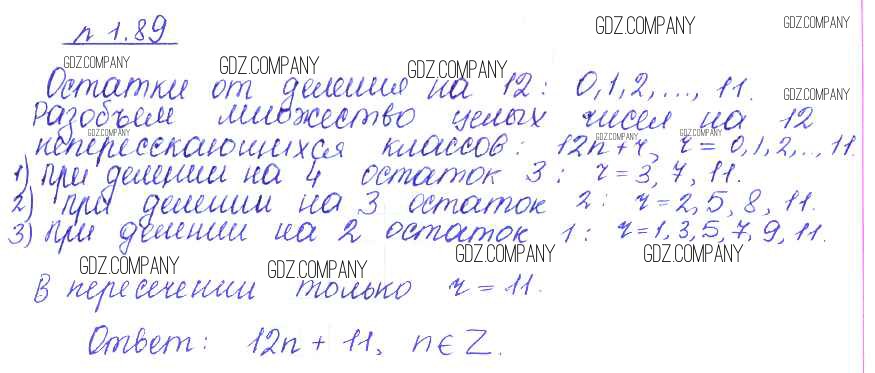 n 1.89
GDZ.COMPANY GDZ.COMPANY
GDZ.COMPANY GDZ.COMPANY GDZ.COMPANY
Остатки от деления на 12: 0,1,2,..., 11.
GDZ.COMPANY
Разобъем множество целых чисел на 12
GDZ.COMPANY GDZ.COMPANY GDZ.COMPANY GDZ.COMPANY
непересекающихся классов: 12n+r, r=0,1,2,..,11.
1) при делении на 4 остаток 3: r=3,7,11.
2) при делении на 3 остаток 2: r=2,5,8,11.
3) при делении на 2 остаток 1: r=1,3,5,7,9,11.
GDZ.COMPANY GDZ.COMPANY GDZ.COMPANY GDZ.COMPANY
В пересечении только r=11.
Ответ: 12n+11, n∈Z.